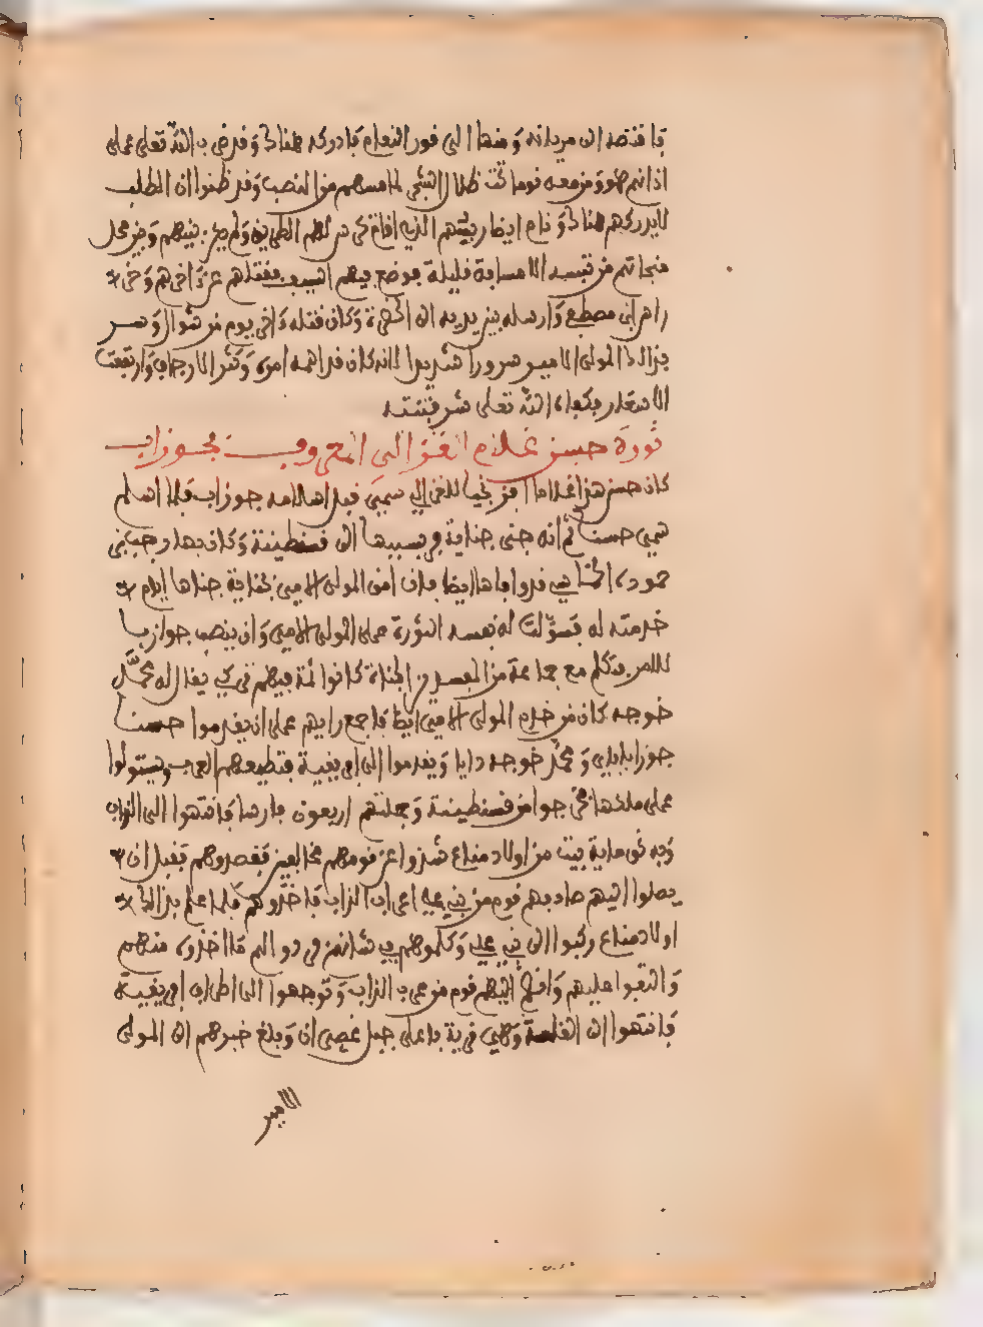 فانتهى الى مرياته ومنها الى فور النعام فادركه هناك وفرض بالله تعلى على
اذانهم هو ومن معه نوما تحت ظلال الشجر لما مسهم من النصب وقد ظنوا ان الطلب
لا يدركهم هناك ونام ايضا ربيئتهم الذي اقام في حرس لهم الطريق ولم يبق بينهم وبين محل
منجاتهم من تبسه الا مسافة قليلة فوضع فيهم السيف فقتلهم عن اخرهم وحز
راس ابن مصطفى وارسله بين يديه الى الحضرة وكان قتله اخر يوم من شوال وسر
بذالك المولى الامير سرورا شديدا لانه كان قد اهمه امره وكثر الارجاف وارتفعت
الاسعار فكفاه الله تعلى شر فتنته
ثورة حسن غلام الغزالي المعروف بجوزاب
كان حسن هذا غلاما افرنجيا للغزالي سمي قبل اسلامه جوزاب فلما اسلم
سمي حسنا ثم انه جنى جناية فر بسببها الى قسنطينة وكان بها رجب بن
حمودة الحنا فر اليها ايضا فلان امن المولى الامير لجناية جناها ايام
خدمته له فسولت له نفسه الثورة على المولى الامير وان ينصب جوازب
للامر فتكلم مع جماعة من المفسدين الجناة كانوا ثمة فيهم تركي يقال له محمد
خوجه كان من خدم المولى الامير ايضا فاجمع رايهم على ان يقدموا حسنا
جوزاب باي ومحمد خوجه دايا ويقدموا الى افريقية فتطيعهم العرب ويستولوا
على ملكها فخرجوا من قسنطينة وجملتهم اربعون فارسا فانتهوا الى الزاب
وبه نحو ماية بيت من اولاد مناع شذوا عن قومهم مخالفين فقصدوهم فقبل ان
يصلوا اليهم صادفهم قوم من بني علي اعراب الزاب فاخذوهم فلما علم بذالك
اولاد مناع ركبوا الى بني علي وكلموهم في شانهم فردوا لهم ما اخذوه منهم
والتفوا عليهم وانضم اليهم قوم من عرب الزاب وتوجهوا الى اطراف افريقية
فانتهوا الى القلعة وهي قرية باعلى جبل غصران وبلغ خبرهم الى المولى
الامير